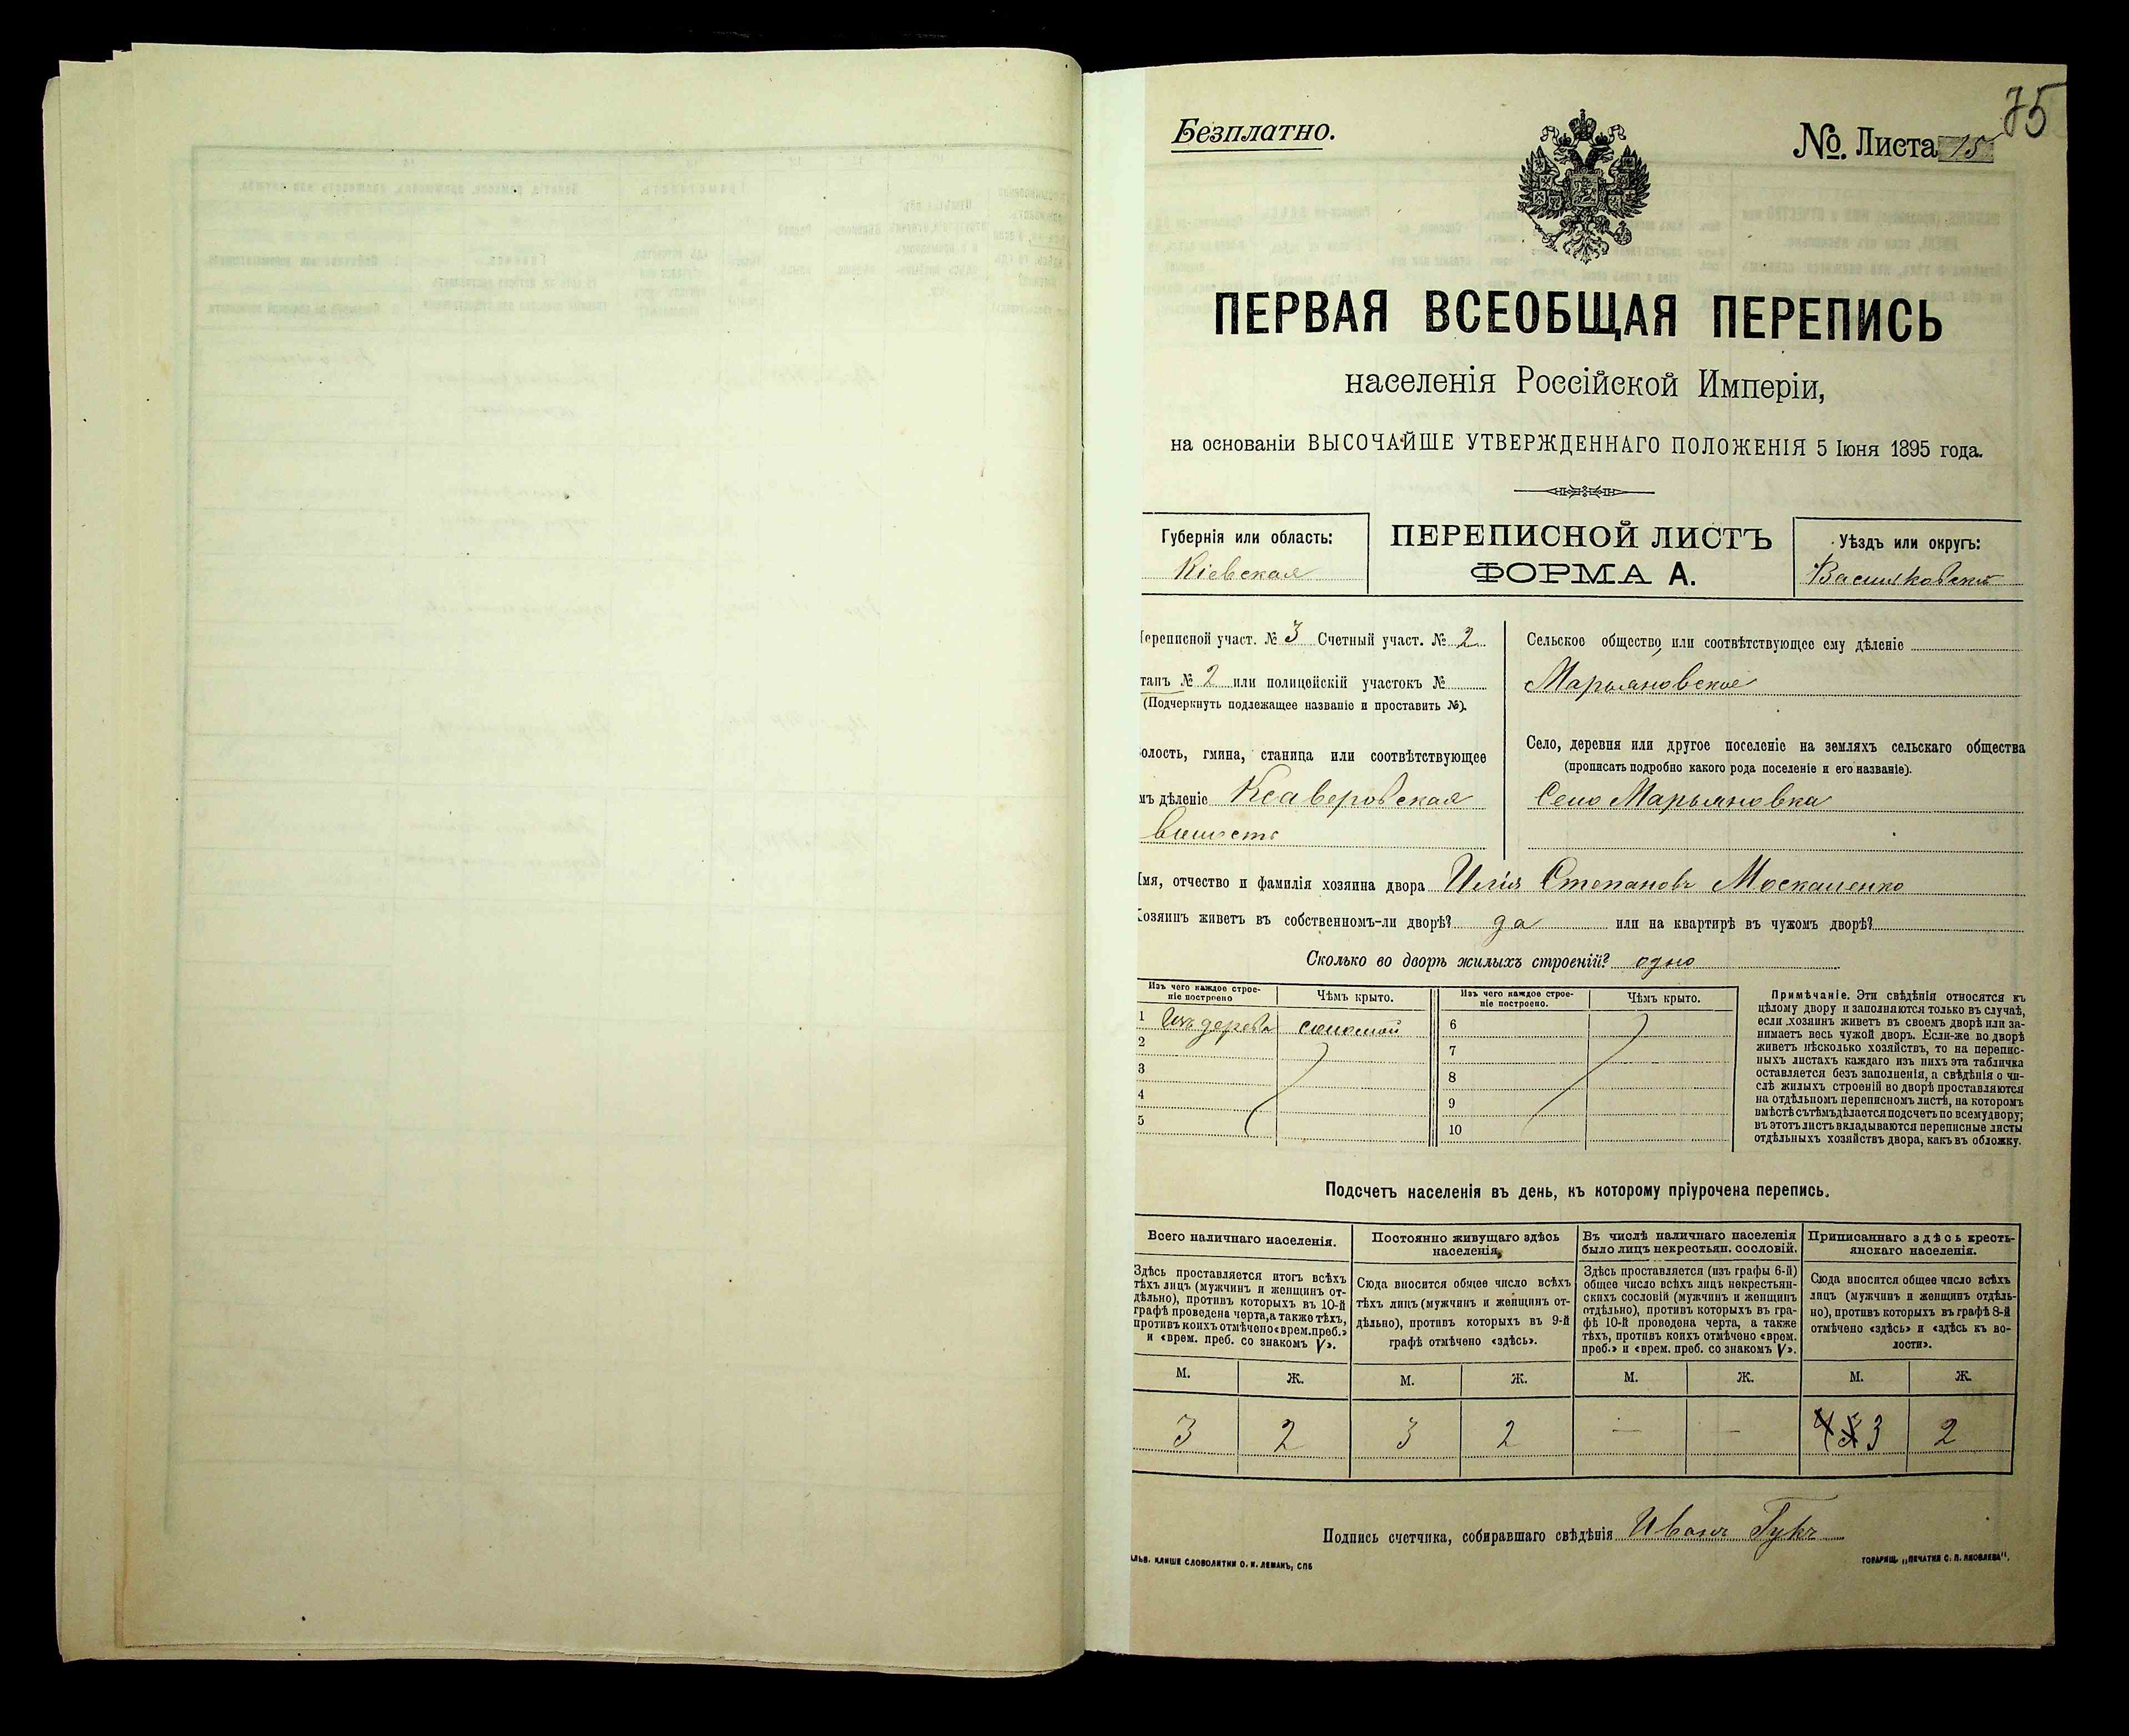 75
Безплатно.
№. Листа 15
ПЕРВАЯ ВСЕОБЩАЯ ПЕРЕПИСЬ
населенія Россійской Имперіи,
на основаніи ВЫСОЧАЙШЕ УТВЕРЖДЕННАГО ПОЛОЖЕНІЯ 5 Іюня 1895 года.
Губернія или область:
Кіевская
ПЕРЕПИСНОЙ ЛИСТЪ
ФОРМА А.
Уѣздъ или округъ:
Васильковскій
ереписной участ. № 3 Счетный участ. № 2
танъ № 2 или полицейскій участокъ №
(Подчеркнуть подлежащее названіе и проставить №).
олость, гмина, станица или соотвѣтствующее
мъ дѣленіе Ксаверовская
волость
Сельское общество, или соотвѣтствующее ему дѣленіе
Марьяновское
Село, деревня или другое поселеніе на земляхъ сельскаго общества
(прописать подробно какого рода поселеніе и его названіе).
Село Марьяновка
Имя, отчество и фамилія хозяина двора Илія Степановъ Москаленко
Хозяинъ живетъ въ собственномъ-ли дворѣ? да или на квартирѣ въ чужомъ дворѣ?
Сколько во дворѣ жилыхъ строеній? одно
Изъ чего каждое строе-
ніе построено
Чѣмъ крыто.
Изъ чего каждое строе-
ніе построено.
Чѣмъ крыто.
1 Изъ дерева соломой
2
3
4
5
6
7
8
9
10
Примѣчаніе. Эти свѣдѣнія относятся къ
цѣлому двору и заполняются только въ случаѣ,
если хозяинъ живетъ въ своемъ дворѣ или за-
нимаетъ весь чужой дворъ. Если-же во дворѣ
живетъ нѣсколько хозяйствъ, то на перепис-
ныхъ листахъ каждаго изъ нихъ эта табличка
оставляется безъ заполненія, а свѣдѣнія о чи-
слѣ жилыхъ строеній во дворѣ проставляются
на отдѣльномъ переписномъ листѣ, на которомъ
вмѣстѣ съ тѣмъ дѣлается подсчетъ по всему двору;
въ этотъ листъ вкладываются переписные листы
отдѣльныхъ хозяйствъ двора, какъ въ обложку.
Подсчетъ населенія въ день, къ которому пріурочена перепись.
Всего наличнаго населенія.
Здѣсь проставляется итогъ всѣхъ
тѣхъ лицъ (мужчинъ и женщинъ от-
дѣльно), противъ которыхъ въ 10-й
графѣ проведена черта, а также тѣхъ,
противъ коихъ отмѣчено «врем. преб.»
и «врем. преб. со знакомъ V».
Постоянно живущаго здѣсь
населенія.
Сюда вносится общее число всѣхъ
тѣхъ лицъ (мужчинъ и женщинъ от-
дѣльно), противъ которыхъ въ 9-й
графѣ отмѣчено «здѣсь».
Въ числѣ наличнаго населенія
было лицъ некрестьян. сословій.
Здѣсь проставляется (изъ графы 6-й)
общее число всѣхъ лицъ некрестьян-
скихъ сословій (мужчинъ и женщинъ
отдѣльно), противъ которыхъ въ гра-
фѣ 10-й проведена черта, а также
тѣхъ, противъ коихъ отмѣчено «врем.
преб.» и «врем. преб. со знакомъ V».
Приписаннаго здѣсь кресть-
янскаго населенія.
Сюда вносится общее число всѣхъ
лицъ (мужчинъ и женщинъ отдѣль-
но), противъ которыхъ въ графѣ 8-й
отмѣчено «здѣсь» и «здѣсь къ во-
лости».
М. Ж. М. Ж. М. Ж. М. Ж.
3 2 3 2 — — 3 2
Подпись счетчика, собиравшаго свѣдѣнія Иванъ Гукъ
КЛИШЕ СЛОВОЛИТНИ О. И. ЛЕМАНЪ, СПБ
ТОВАРИЩ. „ПЕЧАТНЯ С. П. ЯКОВЛЕВА".